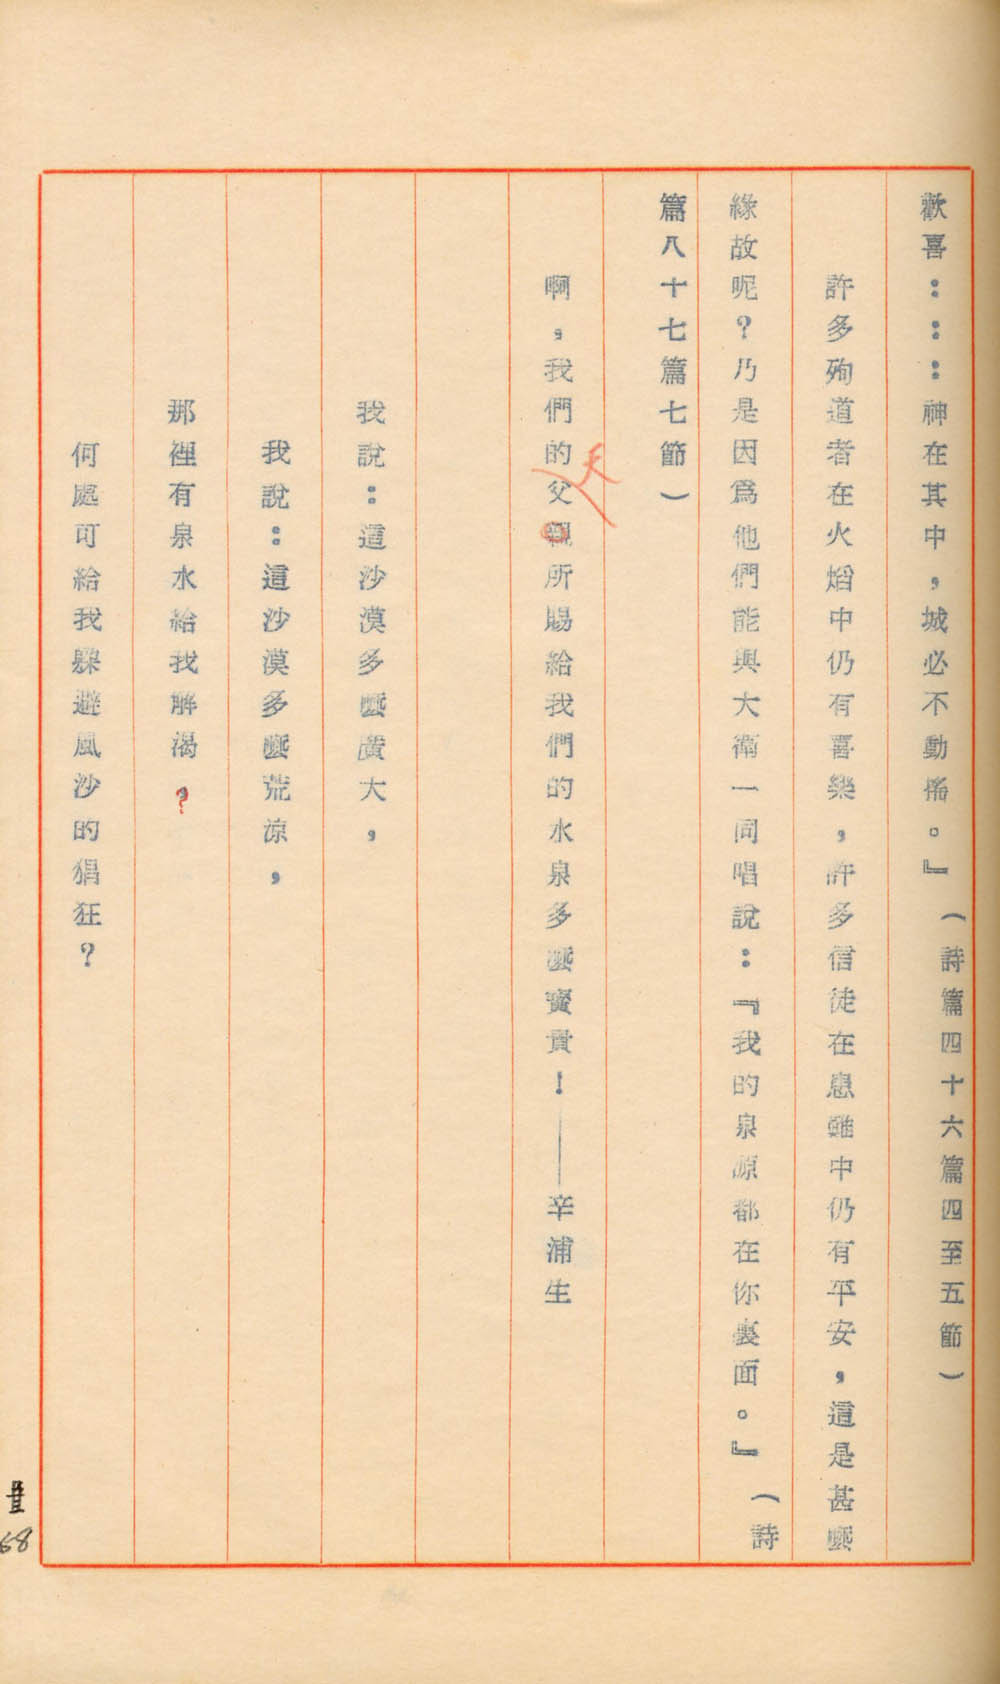 歡喜：：：神在其中，城必不動搖。』（詩篇四十六篇四至五節）
許多殉道者在火焰中仍有喜樂，許多信徒在患難中仍有平安，這是甚麼
緣故呢？乃是因爲他們能與大衛一同唱說：『我的泉源都在你裏面。』（詩
篇八十七篇七節）
啊，我們的天父親所賜給我們的水泉多麼寶貴！——辛浦生
我說：這沙漠多麼廣大，
我說：這沙漠多麼荒涼，
那裡有泉水給我解渴？
何處可給我躲避風沙的猖狂？
68